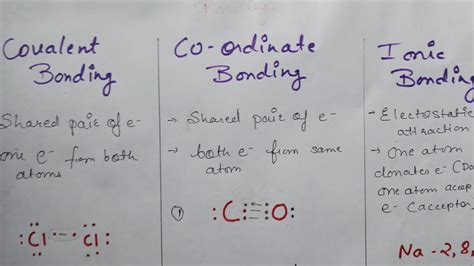 Bonding
Covalent
Bonding
Shared pair of e-
one e- from both
atoms
:Cl Cl:
Co-ordinate
Bonding
→ Shared pair of e-
→ both e- from same
atom
① :C O:
Ionic
Bonding
- Electrostatic
attraction
- One atom
donates e- (Do
one atom accep
e- (acceptor
Na - 2,8,